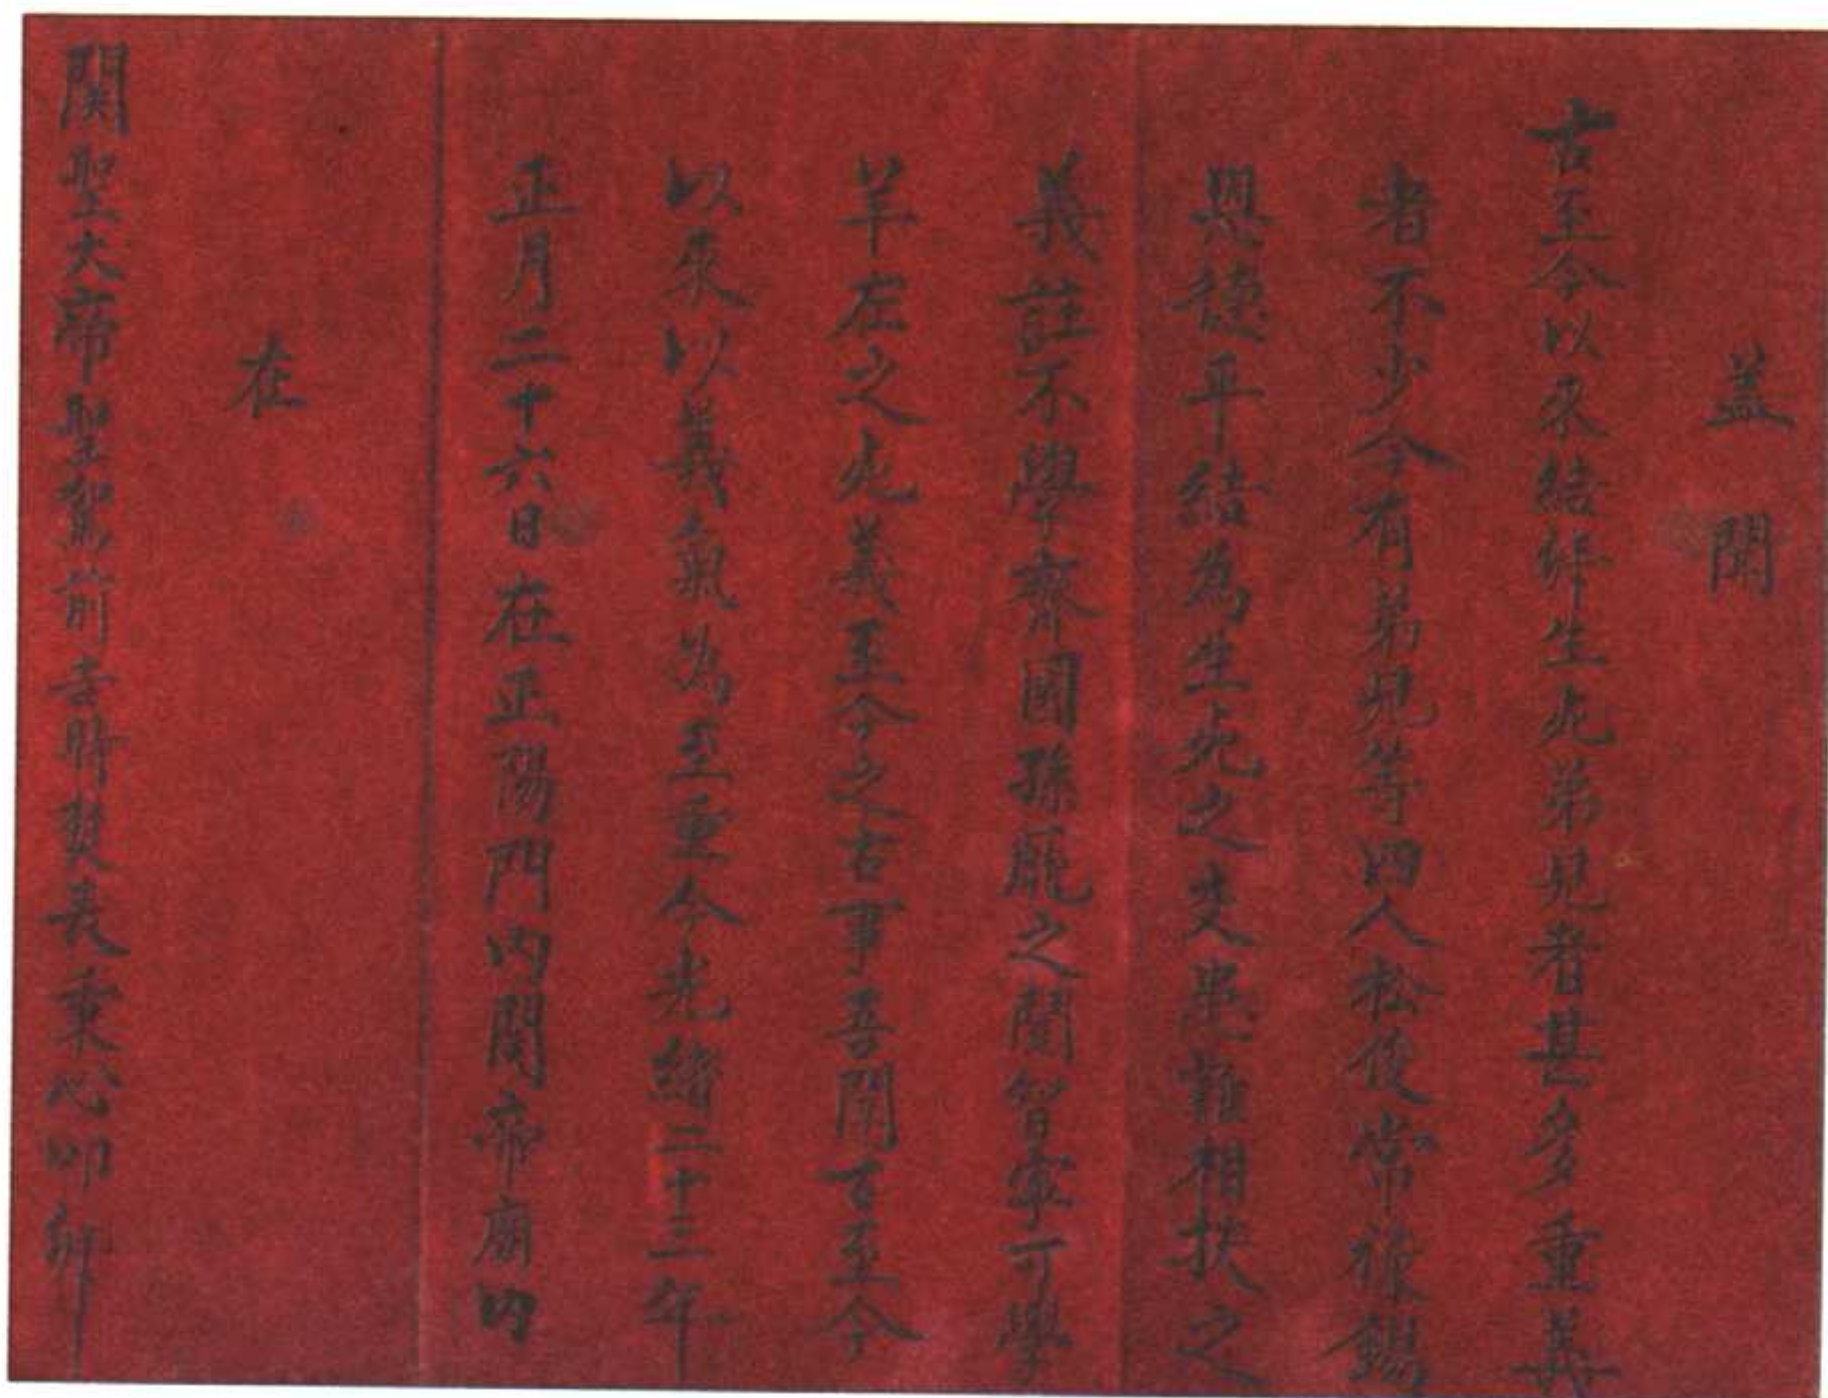 蓋聞
古至今以來結拜生死弟兄者甚多重義
者不少今有弟兄等四人松俊常祿錫
恩德平結為生死之交患難相扶之
義註不學齊國孫龐之鬪智寧可學
羊左之死義至今之古事吾聞古至今
以來以義氣為至重今光緒二十三年
正月二十六日在正陽門內關帝廟叩
在
関聖大帝聖駕前吉時契表秉心叩拜